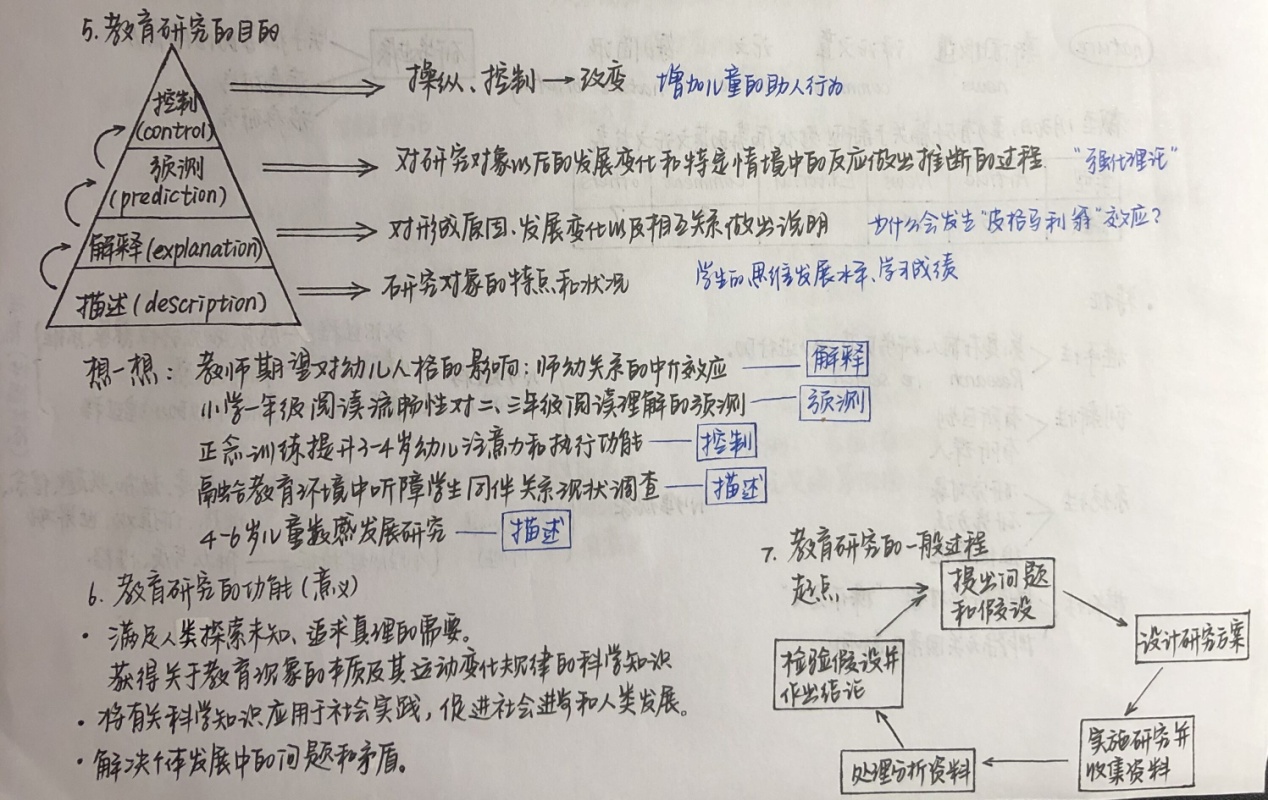 5. 教育研究的目的
控制 (control) 操纵、控制 → 改变 增加儿童的助人行为
预测 (prediction) 对研究对象以后的发展变化和特定情境中的反应做出推断的过程. "强化理论"
解释 (explanation) 对形成原因、发展变化以及相互关系做出说明 为什么会发生"皮格马利翁"效应?
描述 (description) 研究对象的特点和状况 学生的思维发展水平、学习成绩
想一想: 教师期望对幼儿人格的影响: 师幼关系的中介效应 —— 解释
小学一年级阅读流畅性对二、三年级阅读理解的预测 —— 预测
正念训练提升3-4岁幼儿注意力和执行功能 —— 控制
融合教育环境中听障学生同伴关系现状调查 —— 描述
4-6岁儿童数感发展研究 —— 描述
6. 教育研究的功能(意义)
· 满足人类探索未知、追求真理的需要。
获得关于教育现象的本质及其运动变化规律的科学知识
· 将有关科学知识应用于社会实践, 促进社会进步和人类发展。
· 解决个体发展中的问题和矛盾。
7. 教育研究的一般过程
起点 → 提出问题
和假设
设计研究方案
实施研究并
收集资料
处理分析资料
检验假设并
作出结论